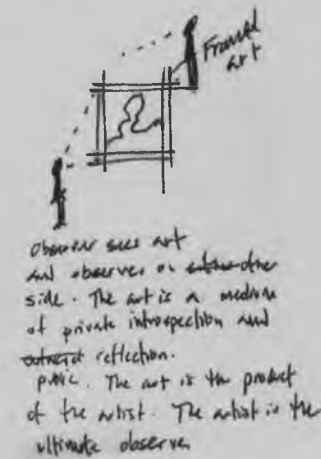 Framed
art
Observer sees art
and observes on other
side. The art is a medium
of private introspection and
reflection.
public. The art is the product
of the artist. The artist is the
ultimate observer